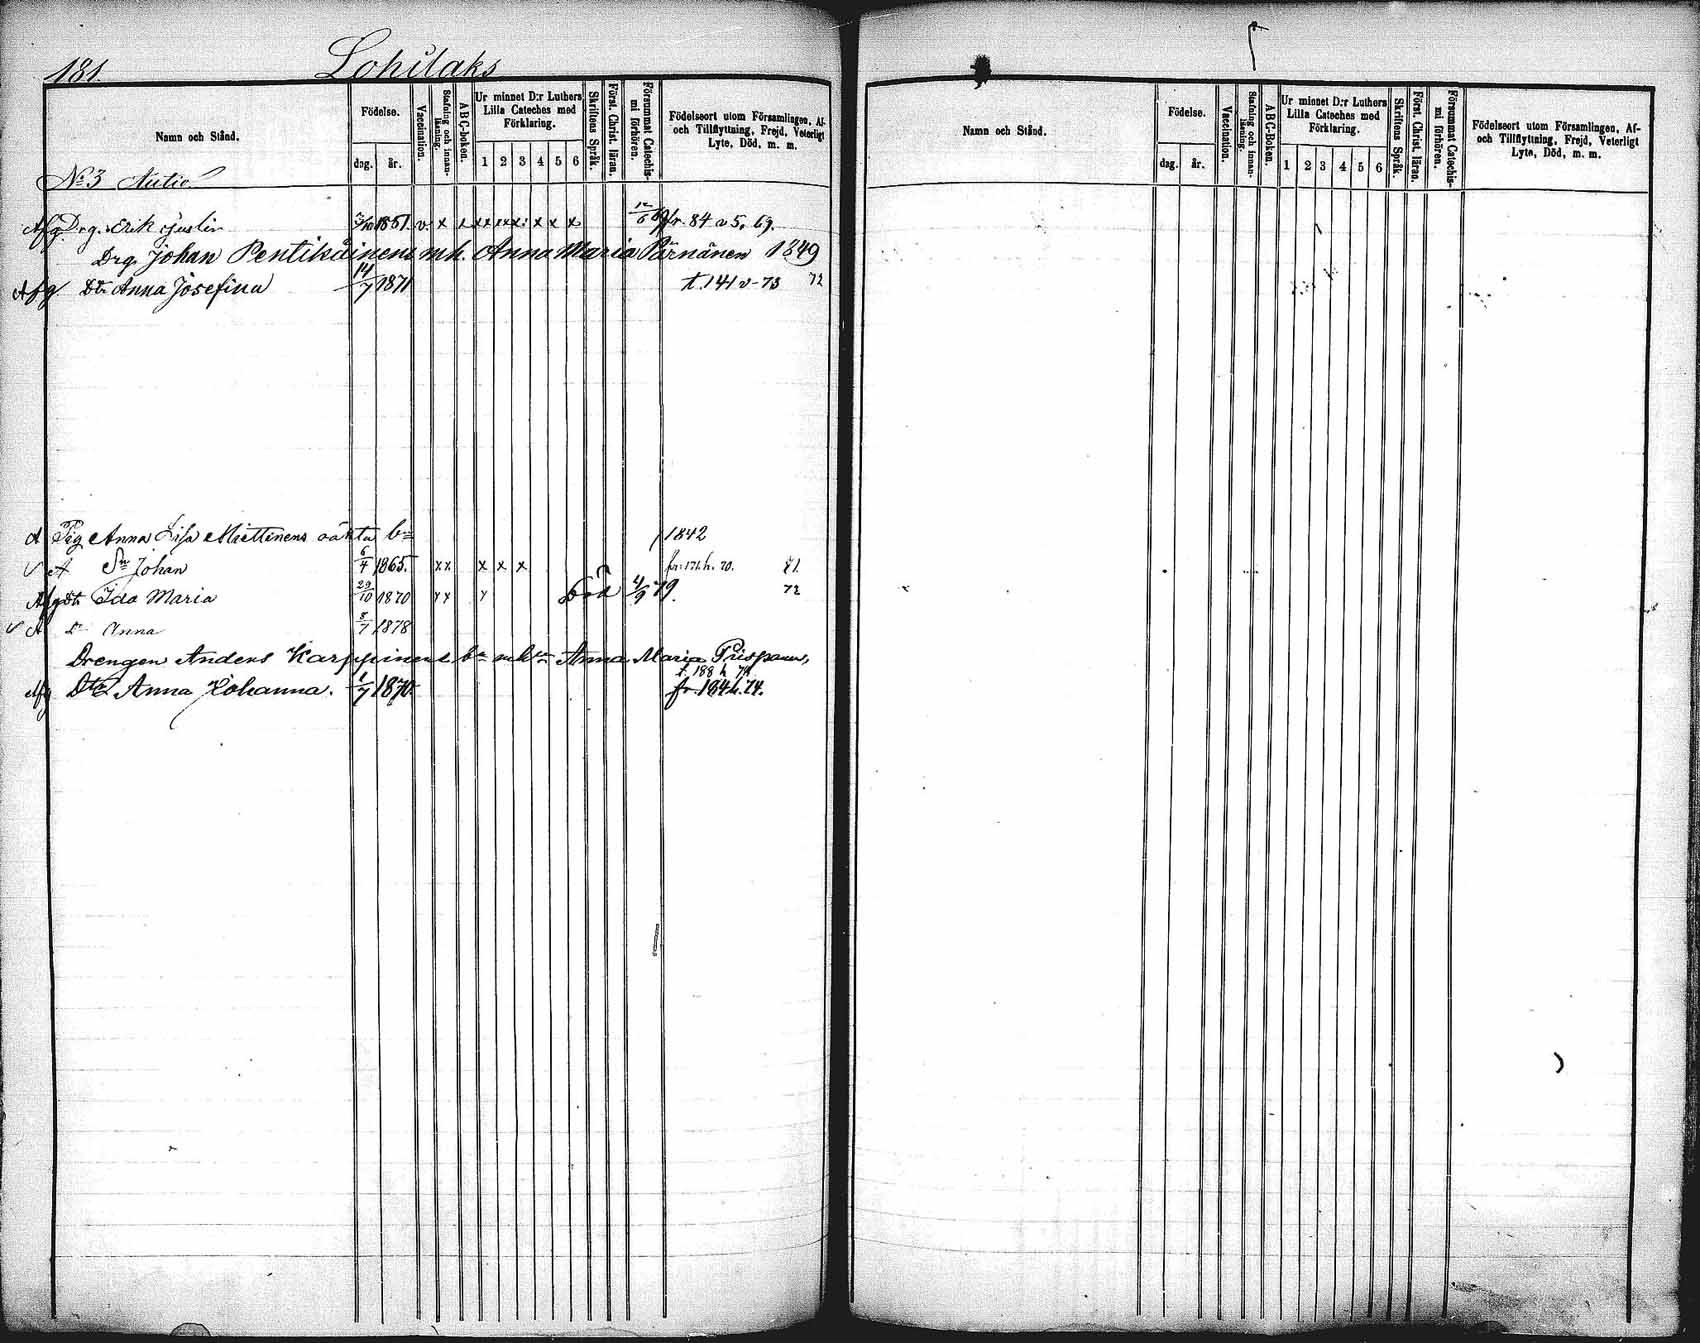 181. Lohilaks
Namn och Stånd.
Födelse.
dag. år.
Vaccination.
Stafning och innanläsning.
ABC-boken.
Ur minnet D:r Luthers Lilla Cateches med Förklaring.
1 2 3 4 5 6
Skriftens Språk.
Först. Christ. läran.
Försummat Catechismi förhören.
Födelseort utom Församlingen, Af- och Tillflyttning, Frejd, Veterligt Lyte, Död, m. m.
No 3 Autio
Afg. Drg. Erik Justin 1851. v. x x x x x x fr. 84 v 5, 69.
Drg. Johan Pentikäinens m.h. Anna Maria Pärnänen 1849
Afg Dtr Anna Josefina 14/7 1871 t. 141 v 73 72
A Pig Anna Lisa Miettinens oäkta bn 1842
A Sn Johan 6/4 1865. xx x x x fr. 171 h. 70. 71.
Afg Dtr Ida Maria 29/10 1870 xx x Död 4/9 79. 72
A Dr Anna 8/7 1878
Drengen Anders Karppinens bn m htn Anna Maria Piispanen,
t. 188 h 74
Afg Dtr Anna Johanna. 1/7 1870. fr. 184 h. 74.
Namn och Stånd.
Födelse.
dag. år.
Vaccination.
Stafning och innanläsning.
ABC-Boken.
Ur minnet D:r Luthers Lilla Cateches med Förklaring.
1 2 3 4 5 6
Skriftens Språk.
Först. Christ. läran.
Försummat Catechismi förhören.
Födelseort utom Församlingen, Af- och Tillflyttning, Frejd, Veterligt Lyte, Död, m. m.